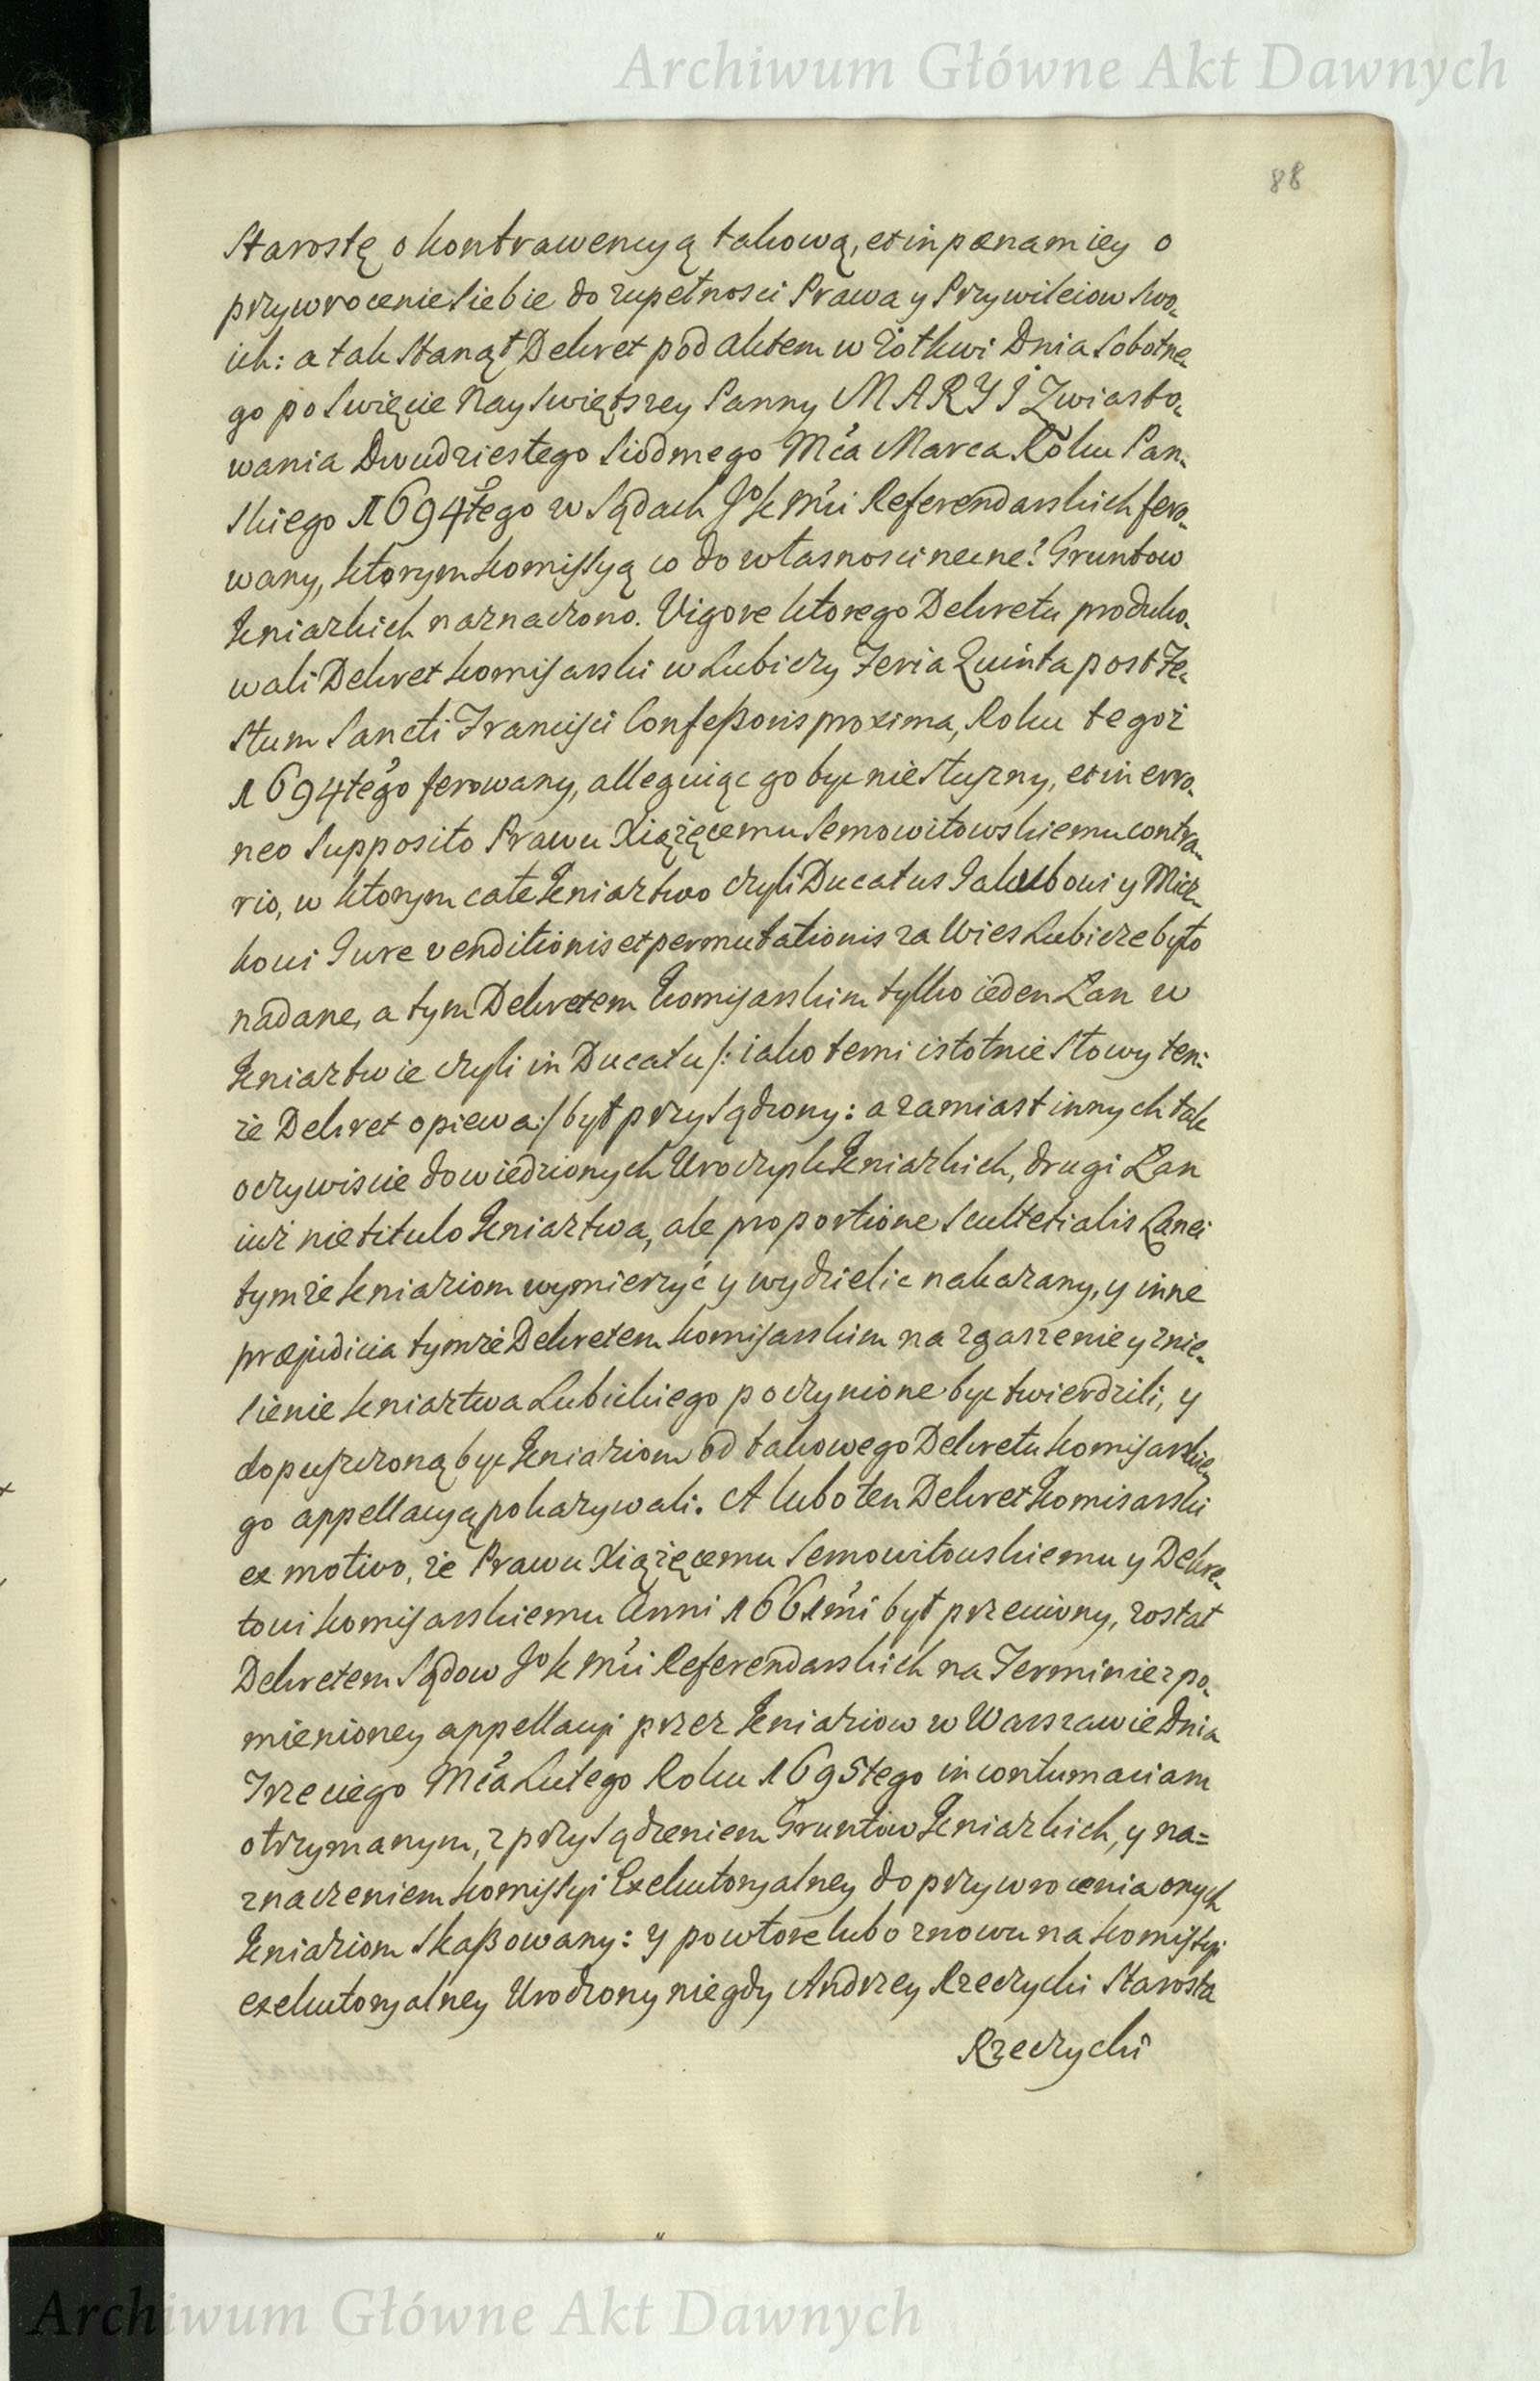 Archiwum Główne Akt Dawnych
88
Starostę o kontrawencyą takową, et in pænam iey o
przywrocenie siebie do zupełnosci Prawa y Przywileiow swo-
ich: a tak stanął Dekret pod aktem w Żołkwi Dnia Sobotne-
go po Swięcie Nayswiętszey Panny MARYI Zwiasto-
wania Dwudziestego Siodmego Mca Marca Roku Pan-
skiego 1694tego w Sądach JoK Mci Referendarskich fero-
wany, ktorym kommissyą co do własnosci necne? Gruntow
Kniazkich naznaczono. Vigore ktorego Dekretu produko-
wali Dekret komisarski w Lubiczy Feria Quinta post Fe-
stum Sancti Francisci Confeßoris proxima, Roku tegoż
1694tego ferowany, alleguiąc go byc niesłuszny, et in erro-
neo supposito Prawu Xiążęcemu Semowitowskiemu contra-
rio, w ktorym całe Kniaztwo czyli Ducatus Jakubowi y Micz-
kowi Jure venditionis et permutationis za Wies Lubicze było
nadane, a tym Dekretem komisarskim tylko ieden Łan w
Kniaztwie czyli in Ducatu /: iako temi istotnie słowy ten-
że Dekret opiewa :/ był przysądzony: a zamiast innych tak
oczywiscie dowiedzionych Uroczysk Kniazkich, drugi Łan
iuż nie titulo Kniaztwa, ale proportione Scultetialis Lanei
tymże Kniaziom wymierzyć y wydzielic nakazany, y inne
præjudicia tymże Dekretem komisarskim na zgaszenie y znie-
sienie Kniaztwa Lubickiego poczynione byc twierdzili, y
dopuszczoną byc Kniaziom od takowego Dekretu komisarskie-
go appellacyą pokazywali. A lubo ten Dekret komisarski
ex motivo, że Prawu Xiążęcemu Semowitowskiemu y Dekre-
towi komisarskiemu Anni 1661mi był przeciwny, został
Dekretem Sądow JoK Mci Referendarskich na Terminie zpo-
mienioney appellacyi przez Kniaziow w Warszawie Dnia
Trzeciego Mca Lutego Roku 1695tego in contumaciam
otrzymanym, z przysądzeniem Gruntow Kniazkich, y na=
znaczeniem kommissyi Exekutoryalney do przywrocenia onych
Kniaziom skaßowany: y powtore lubo znowu na kommissyi
exekutoryalney Urodzony niegdy Andrzey Rzeczycki Starosta
Rzeczycki
Archiwum Główne Akt Dawnych